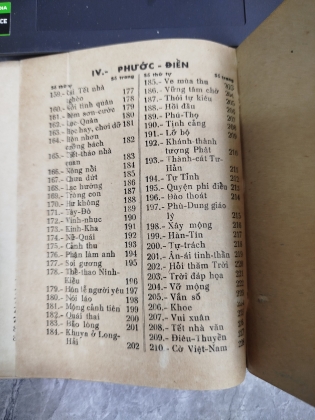 IV.- PHƯỚC-ĐIỀN
Số thứ tự Số trang
159.- Tết nhà
nghèo 177
160.- tình quân 178
161.- sơn-cước 180
162.- Lạc Quân 181
163.- Học hay, chơi dở 181
164.- nhơn
cường bách 182
165.- Tiết-tháo nhà
noan 183
166.- Nặng nỗi 184
167.- Chưa dứt 185
168.- Lạc hường 186
169.- Trông con 187
170.- Hư không 188
171.- Tây-Đô 189
172.- Vinh-nhục 190
173.- Kinh-Kha 191
174.- Nê-Quái 192
175.- Cảnh thu 193
176.- Phận làm anh 194
177.- Soi gương 195
178.- Thề-thao Ninh-
Kiều 196
179.- Hôn lễ người yêu 197
180.- Nói láo 198
181.- Mộng cảnh tiên 199
182.- Quái thai 200
183.- Hảo lòng 201
184.- Khuya ở Long-
Hải 202
Số thứ tự Số trang
185.- Ve mùa thu 203
186.- Vững tâm chờ 204
187.- Thói tự kiêu 205
188.- Hồi đầu
189.- Phú-Thọ
190.- Tịnh cảng
191.- Lỡ bộ
192.- Khánh-thành
tượng Phật 210
193.- Thành-cát Tư-
Hãn 211
194.- Tự Tỉnh 212
195.- Quyện phi điểu 213
196.- Đào thoát 214
197.- Phù-Dung giáo
lý 215
198.- Xây mộng
199.- Hàn-Tín
200.- Tự-trách
201.- Ân-ái tinh-thần
202.- Hỏi thăm Trời
203.- Trời đáp họa
204.- Vỡ mộng
205.- Vần số
206.- Khoe
207.- Vui xuân
208.- Tết nhà văn
209.- Điêu-Thuyền
210.- Cờ Việt-Nam